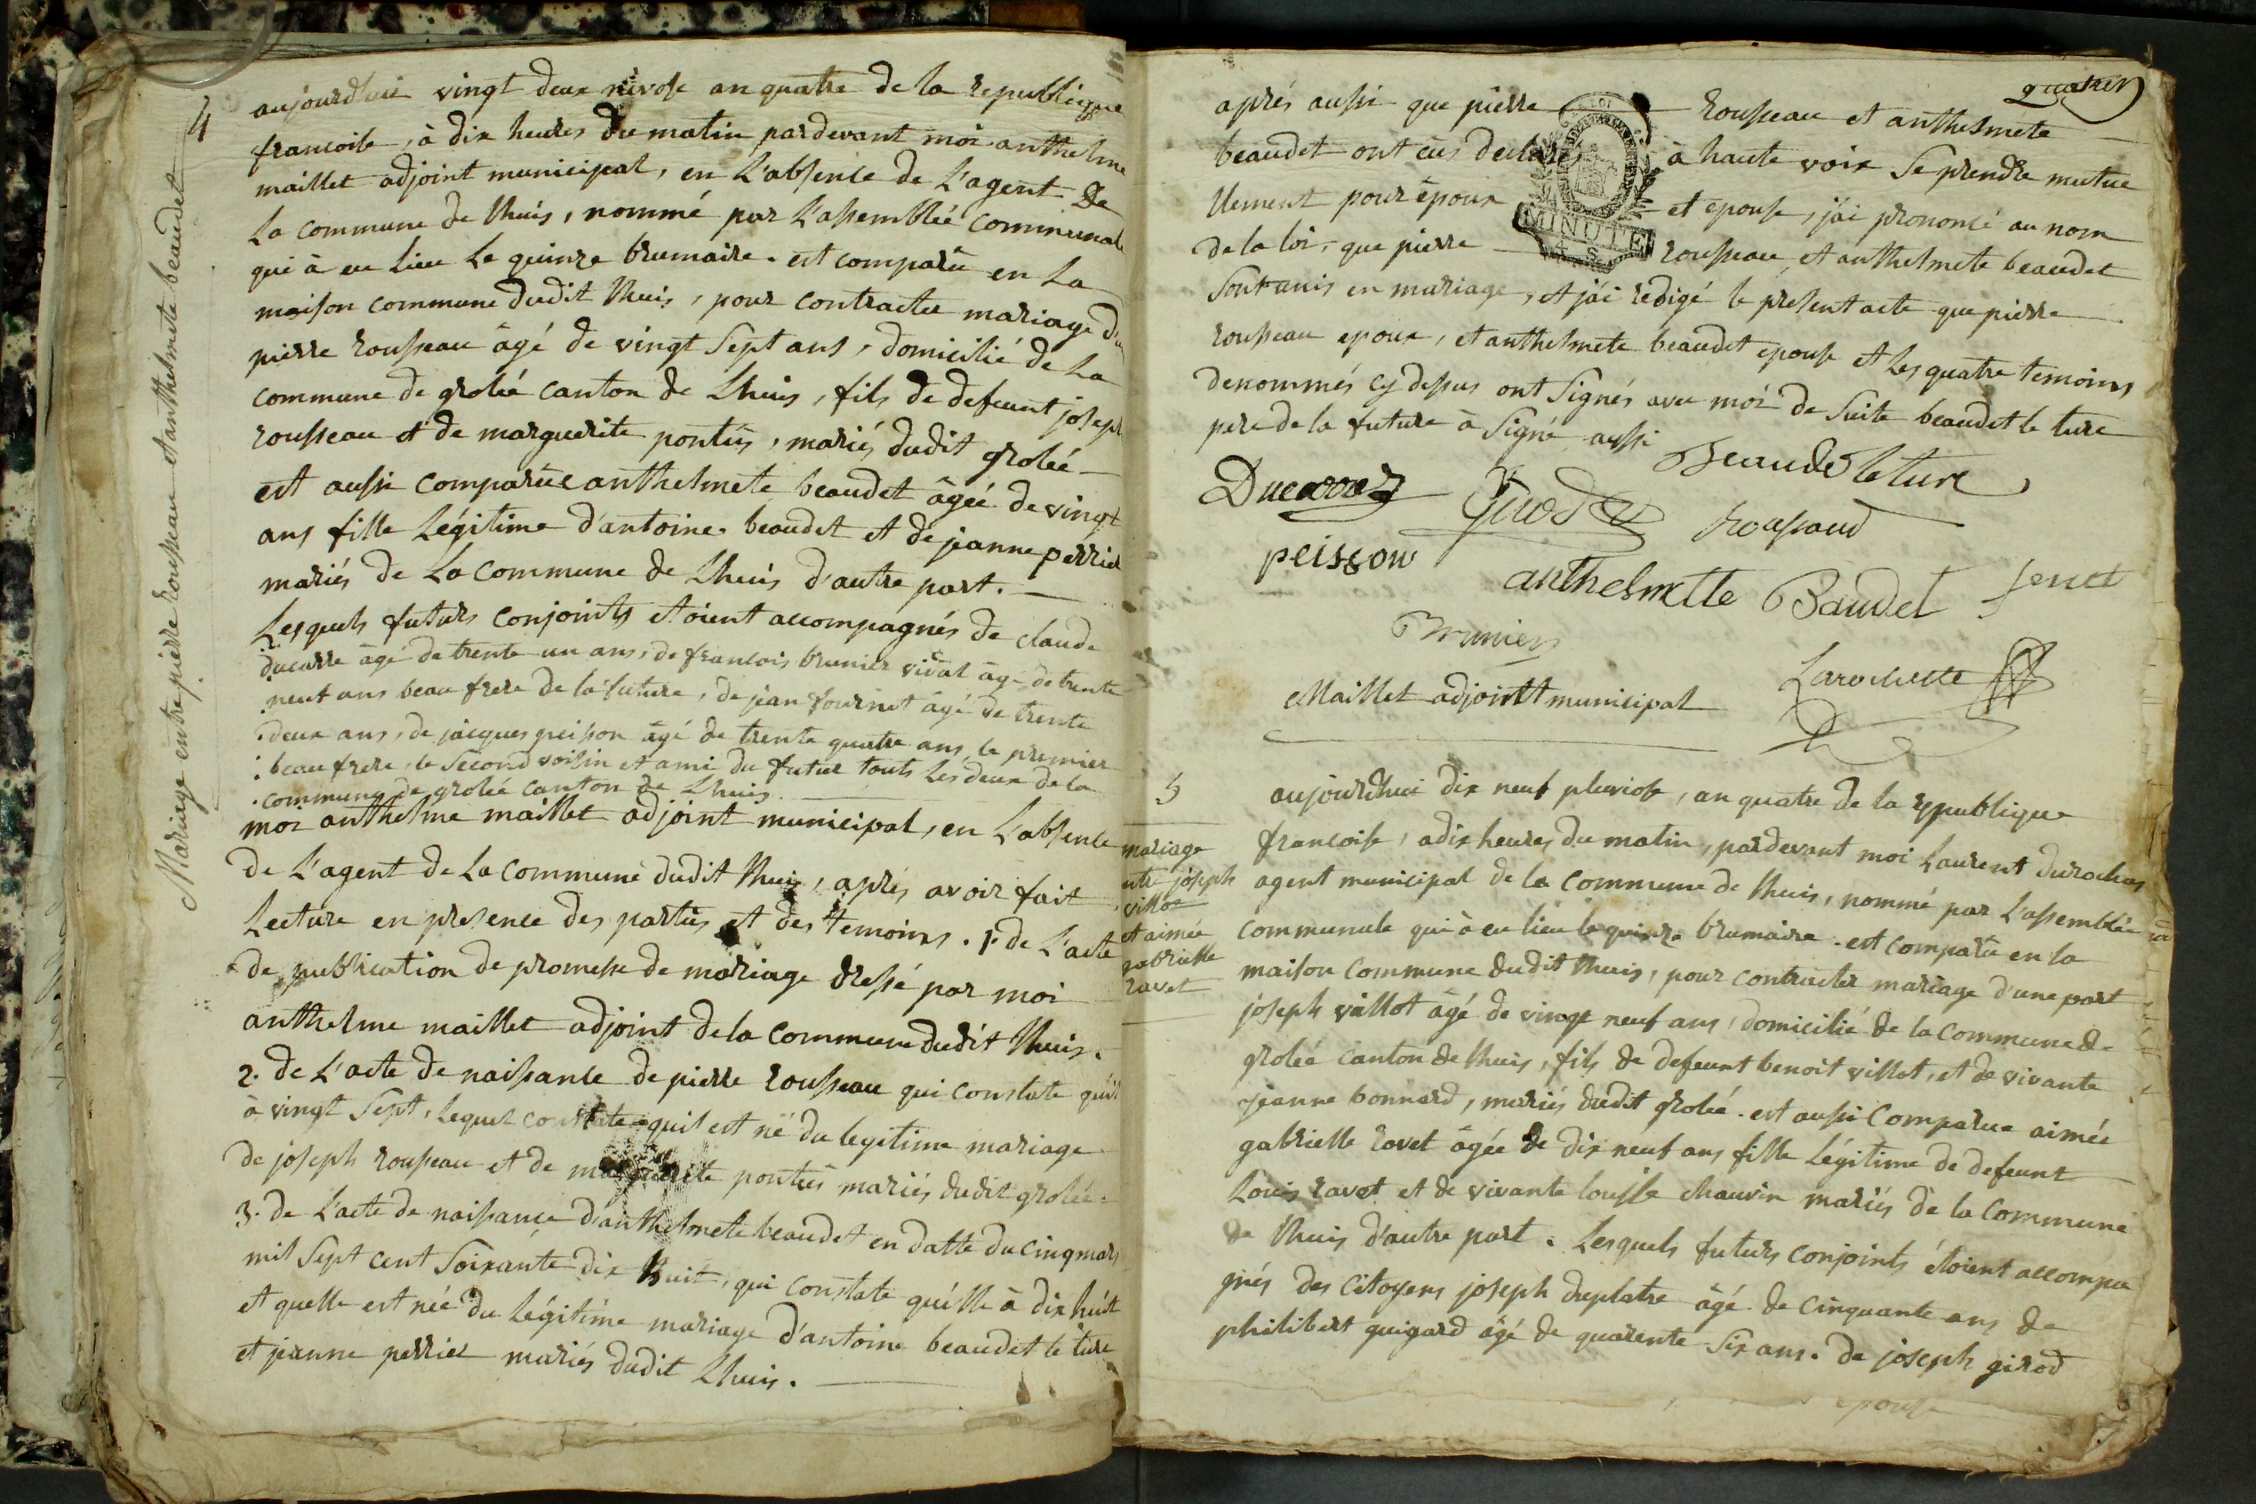 4
Mariage entre pierre rousseau et anthelmete beaudet
aujourdhui vingt deux nivose an quatre de la republique
francoise, à dix heures du matin pardevant moi anthelme
maillet adjoint municipal, en L'absence de L'agent de
La commune de Lhuis, nommé par L'assemblée communale
qui à eu Lieu Le quinze brumaire. est comparu en La
maison commune dudit Lhuis, pour contracter mariage
pierre rousseau âgé de vingt Sept ans, domicilié de La
commune de grolée canton de Lhuis, fils de defeunt joseph
rousseau et de marguerite pontus, mariés dudit grolée
est aussi comparue anthelmete beaudet âgée de vingt
ans fille Légitime d'antoine beaudet et de jeanne perrier
mariés de La commune de Lhuis d'autre part.
Lesquels futurs conjoints etoient accompagnés de claude
ducarre âgé de trente un ans, de francois brunier vivat âgé de trente
neuf ans beau frere de la future, de jean fournet âgé de trente
deux ans, de jacques peisson âgé de trente quatre ans, le premier
beau frere, le Second voisin et ami du futur touts Les deux de la
commune de grolée canton de Lhuis
moi anthelme maillet adjoint municipal, en L'absence
de L'agent de La commune dudit Lhuis, aprés avoir fait
Lecture en presence des parties et des temoins. 1. de L'acte
de publication de promesse de mariage dressé par moi
anthelme maillet adjoint de la commune dudit Lhuis.
2. de L'acte de naissance de pierre rousseau qui constate qu'il
à vingt Sept, Lequel constate quil est né du legitime mariage
de joseph rousseau et de marguerite pontus mariés dudit grolée.
3. de L'acte de naissance d'anthelmete beaudet en datte du cinq mars
mil Sept cent Soixante dix huit, qui constate qu'elle à dix huit
et quelle est née du Légitime mariage d'antoine beaudet le ture
et jeanne perrier mariés dudit Lhuis.
quatre
aprés aussi que pierre rousseau et anthelmete
beaudet ont eûs declarés à haute voix Se prendre mutue
llement pour époux et epouse, j'ai prononcé au nom
de la loi, que pierre rousseau et anthelmete beaudet
Sont unis en mariage, et j'ai redigé le present acte que pierre
rousseau epoux, et anthelmete beaudet epouse et Les quatre temoins
denommés cy dessus ont Signés avec moi de Suite beaudet le ture
pere de la future à Signé aussi
MINUTE
Beaude leture
Ducarre
Roussaud
peisson
anthelmette Baudet
Brunier
Maillet adjoint municipal
Larochette
5
mariage
entre joseph
villot
et aimée
gabrielle
ravet
aujourdhui dix neuf pluviose, an quatre de la republique
francoise, a dix heures du matin, pardevant moi Laurent durochas
agent municipal de la commune de Lhuis, nommé par L'assemblée
communale qui à eu lieu le quinze brumaire. est comparu en la
maison commune dudit Lhuis, pour contracter mariage d'une part
joseph villot âgé de vingt neuf ans, domicilié de la commune de
grolée canton de Lhuis, fils de defeunt benoit villot, et de vivante
jeanne bonnard, mariés dudit grolée. est aussi comparue aimée
gabrielle ravet âgée de dix neuf ans fille Légitime de defeunt
Louis ravet et de vivante louise chauvin mariés de la commune
de Lhuis d'autre part. Lesquels futurs conjoints étoient accompa
gnés des citoyens joseph duplatre âgé de cinquante ans de
philibert guigard âgé de quarente Six ans. de joseph girod
epouse